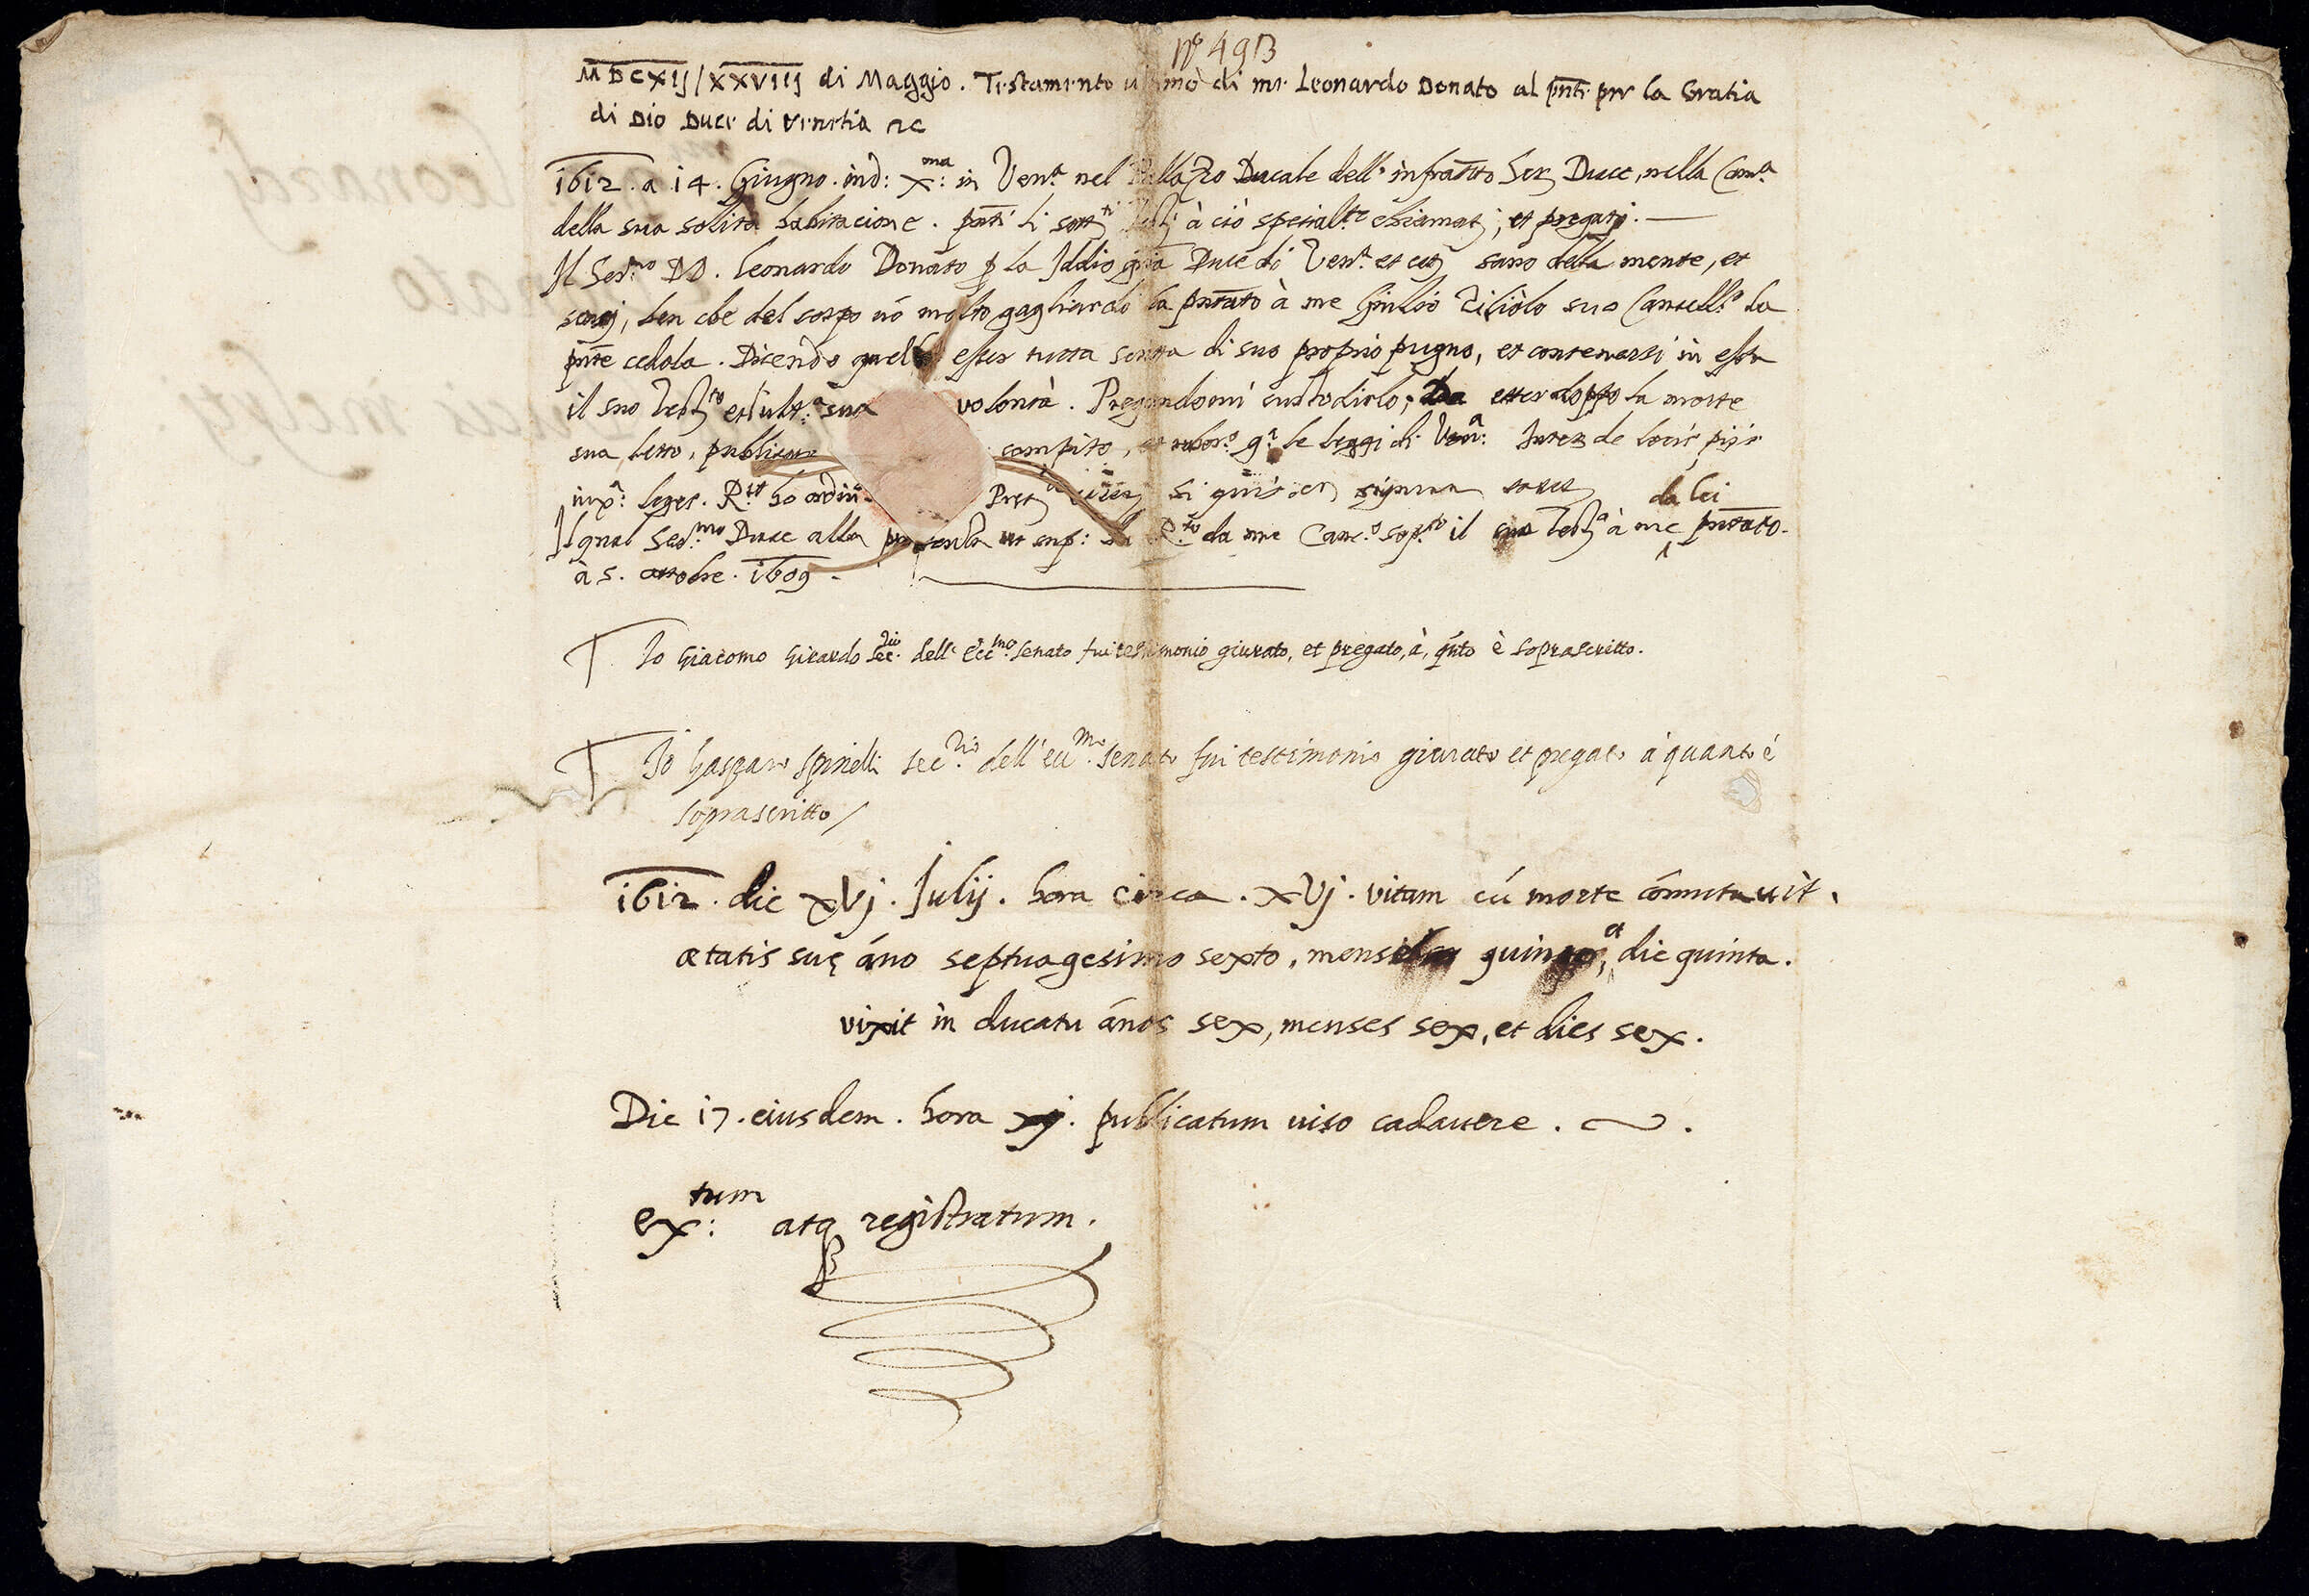 nº 493
MDCXIJ / XXVIIJ di Maggio. Testamento ultimo di me Leonardo Donato al pnte per la Gratia
di Dio Duce di Venetia &c
1612. a 14. Giugno. ind: Xma: in Vena nel Pallazzo Ducale dell' infratto Ser Duce, nella Cama
della sua solita habitacione. pnti li à ciò specialte chiamatj, et pregatj.
Il Sermo DD. Leonardo Donato p la Iddio gra Duce di Vena et sano della mente, et
ben che del corpo nõ molto gagliardo ha pntato à me Giulio Ziliolo suo Cancellr la
pnte cedola. Dicendo quella esser tutta scritta di suo proprio pugno, et contenersi in essa
il suo Testto et ulta sua volontà. Pregandomi custodirlo, Da esser doppo la morte
sua letto, publicato compito, et robor.o g.a le leggi di Vena: de locis pijs
iuxa: leges. Rit ho ordin Si quis
Il qual Sermo Duce alla presentia ut sup: da me Canc.o sop.to il suo Test à me da lei pntato.
à 5. ottobre. 1609.
Io Giacomo Girardo Secrio dell' Eccmo Senato fui testimonio giurato, et pregato, à, qnto è soprascritto.
Io Gasparo Spinelli secrio dell' eccmo Senato fui testimonio giurato et pregato à quanto é
soprascritto /
1612. die XVj. Julij. hora circa. XVj. vitam cú morte cõmutauit.
ætatis suę áno septuagesimo sexto, mense quinto, et die quinta.
vixit in ducatu ános sex, menses sex, et dies sex.
Die 17. eiusdem. hora xj. publicatum uiso cadauere.
extum: atq registratum.